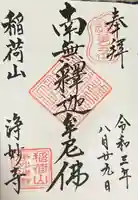 奉拝
令和三年
八月廿九日
南無釋迦牟尼佛
稲荷山
浄妙寺